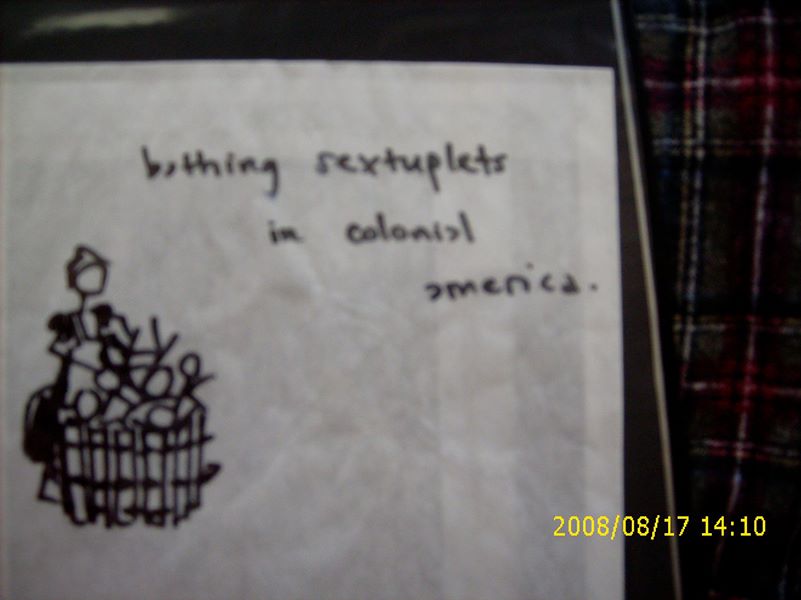 bathing sextuplets
in colonial
america.
2008/08/17 14:10